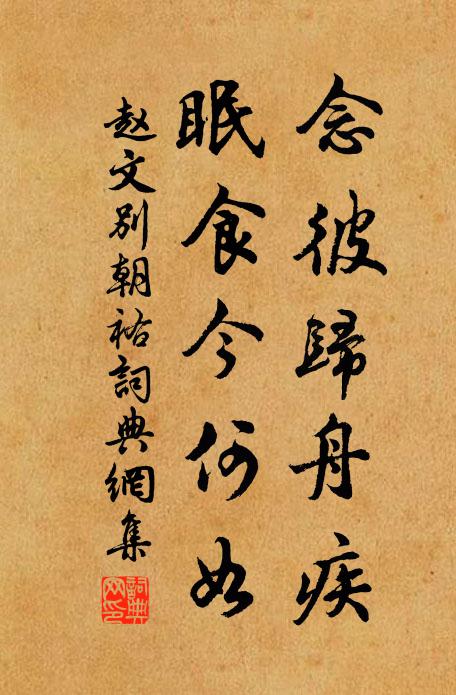 念彼歸舟疾
眠食今何如
赵文别朝祐詞典網集
詞典網印